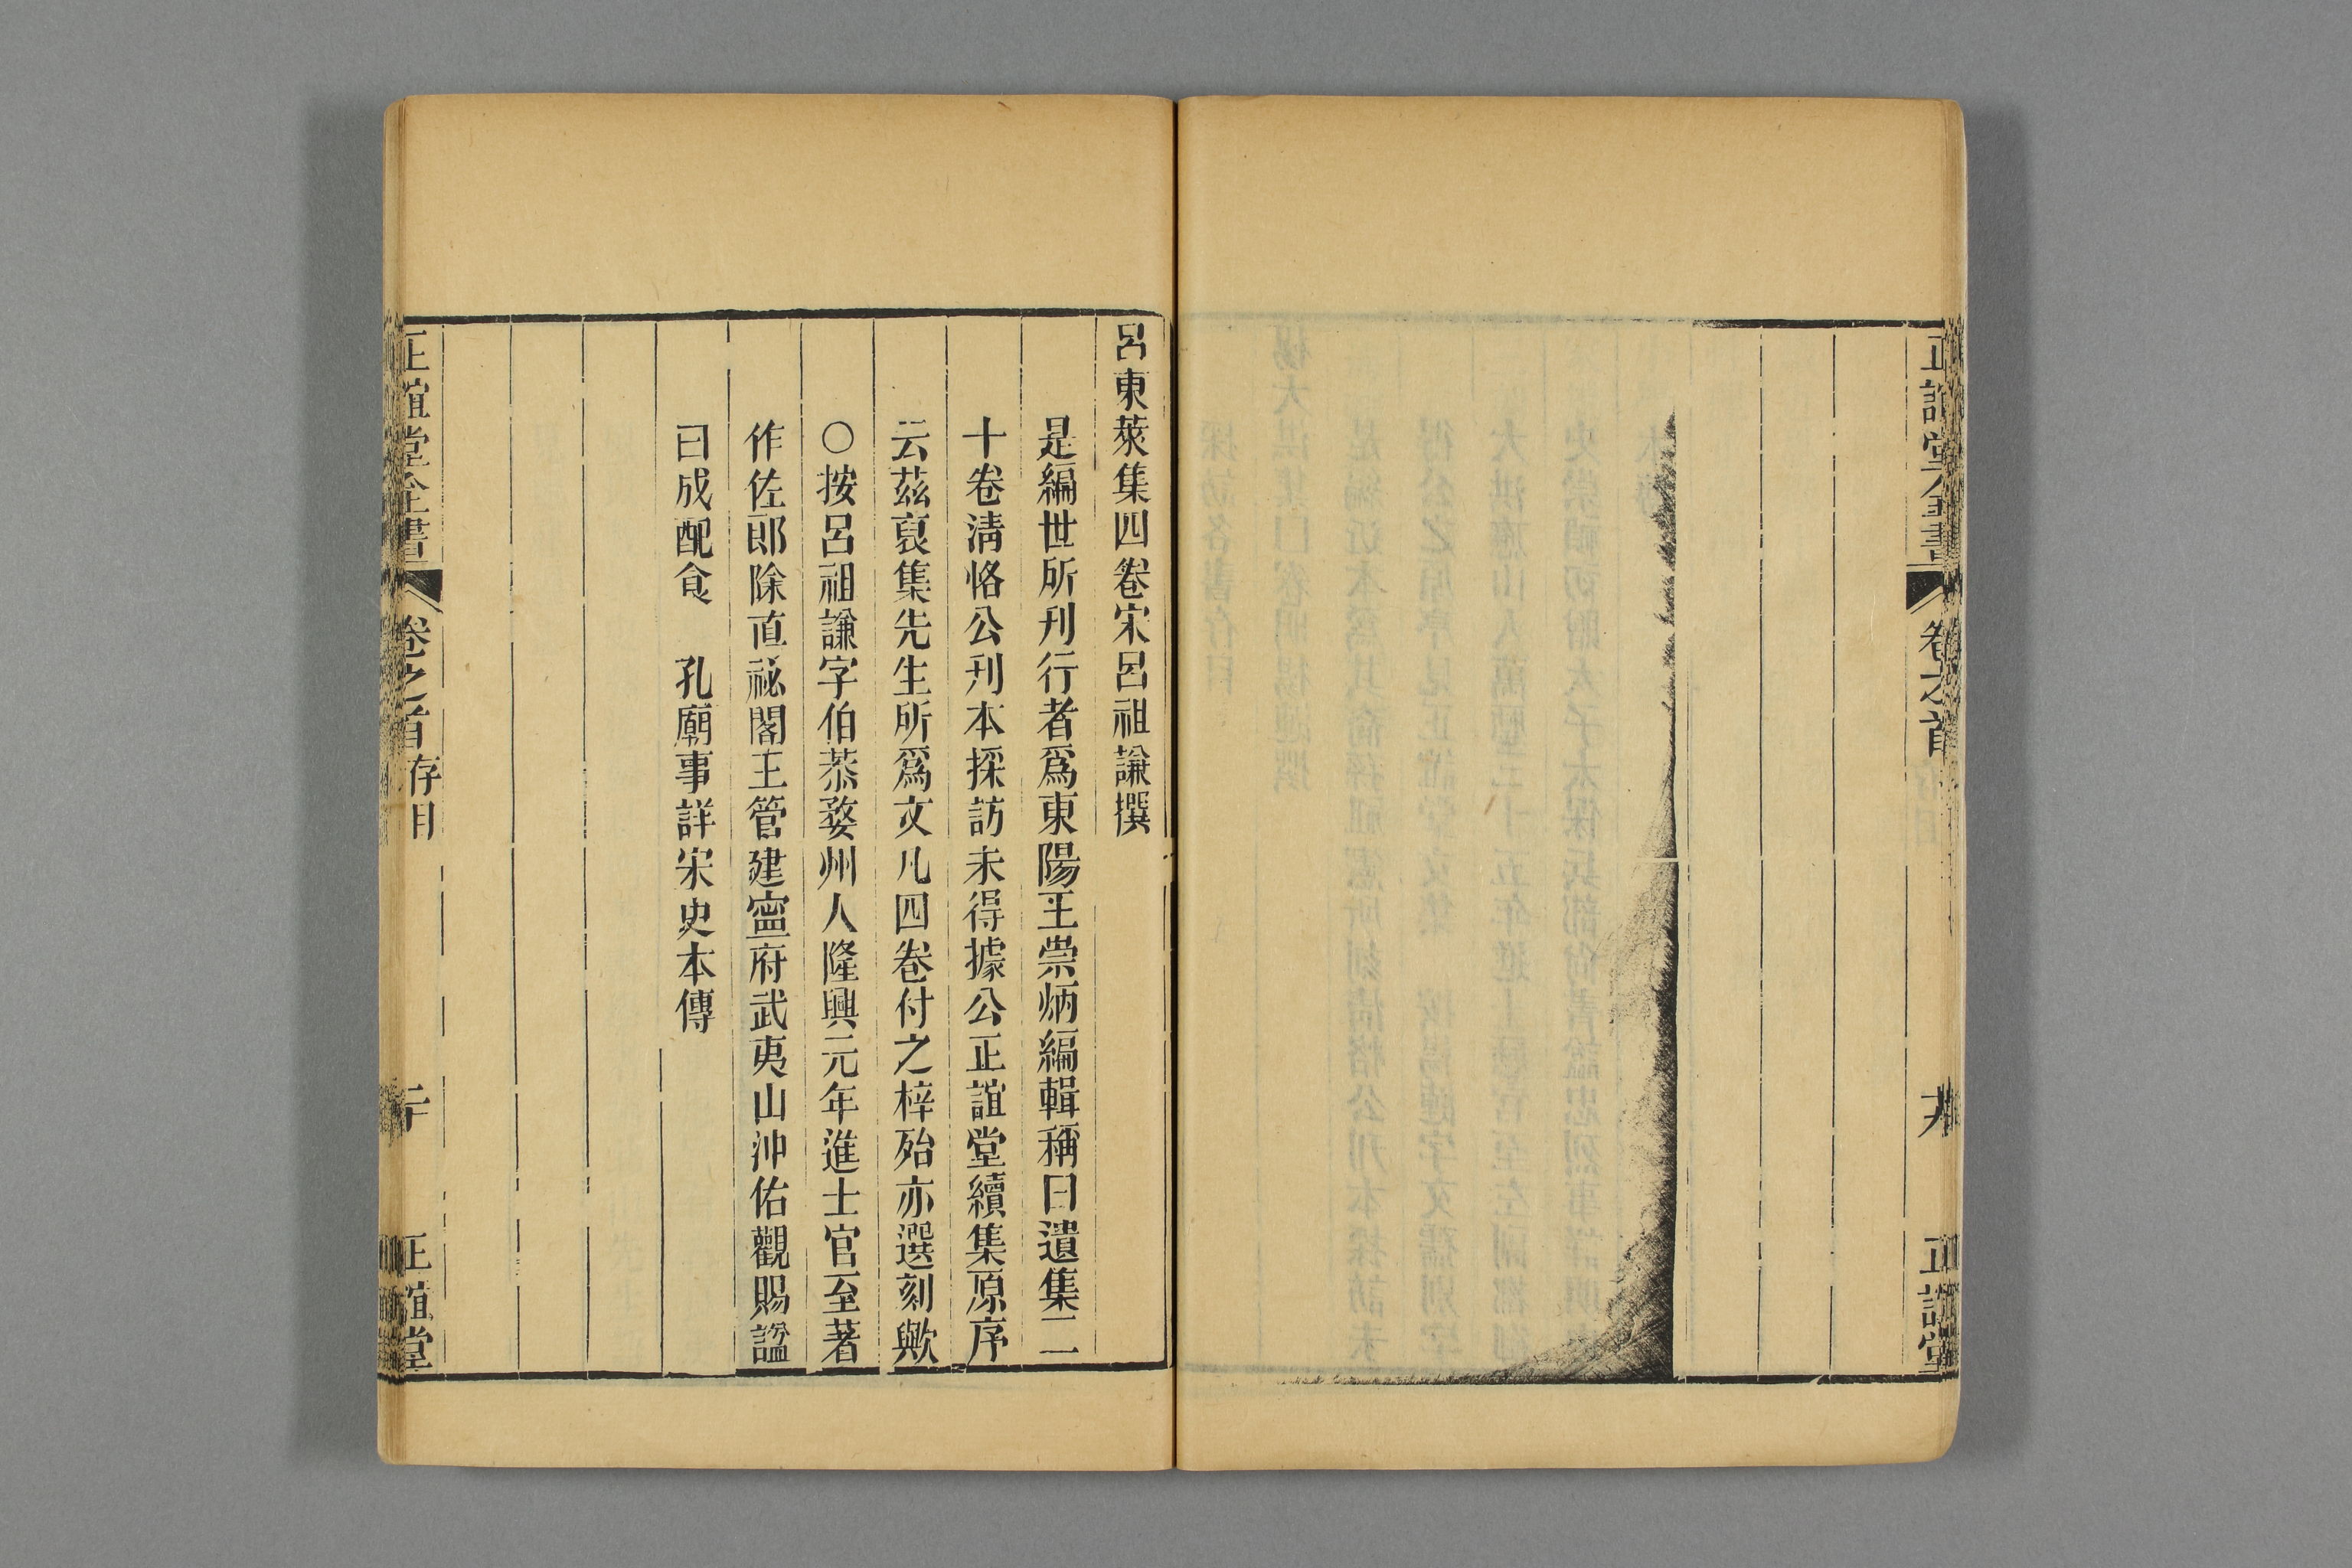 正誼堂全書 卷之首
正誼堂
呂東萊集四卷宋呂祖謙撰
是編世所刊行者爲東陽王崇炳編輯稱曰遺集二
十卷淸恪公刋本採訪未得據公正誼堂續集原序
云茲裒集先生所爲文凡四卷付之梓殆亦選刻歟
○按呂祖謙字伯恭婺州人隆興元年進士官至著
作佐郎除直祕閣王管建寧府武夷山沖佑觀賜諡
曰成配食　孔廟事詳宋史本傳
正誼堂全書 卷之首 存目
正誼堂